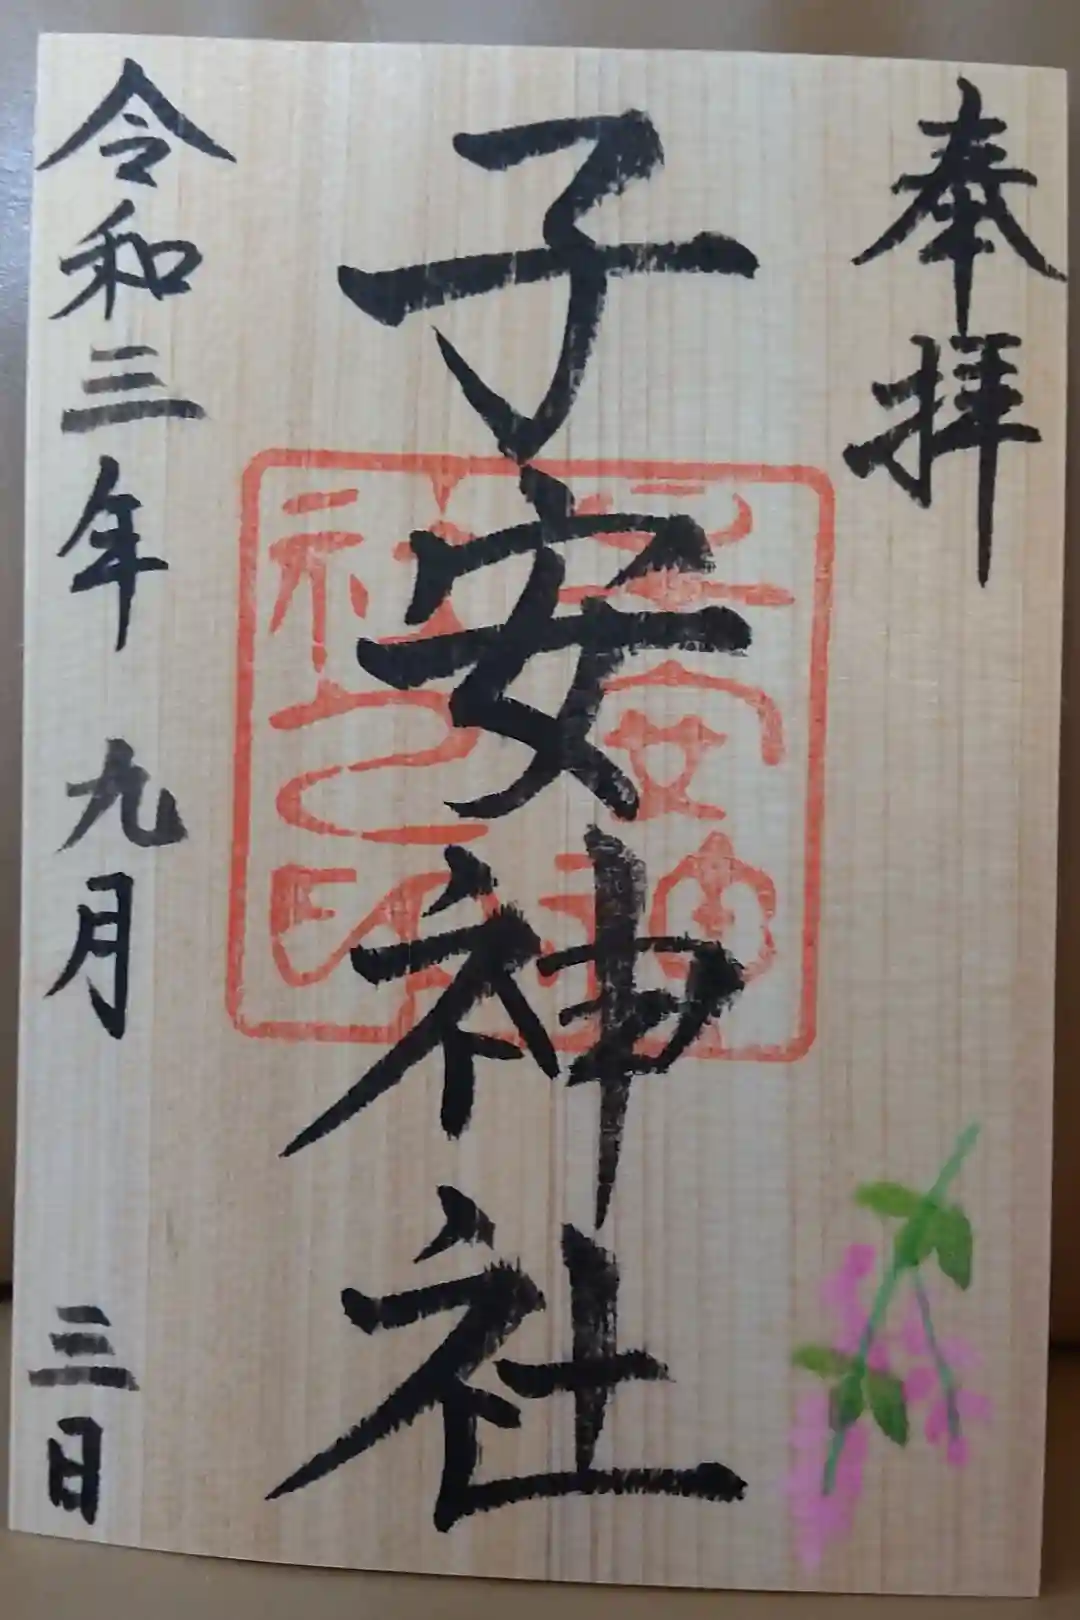 奉拝
子安神社
子安神社之印
令和三年九月三日